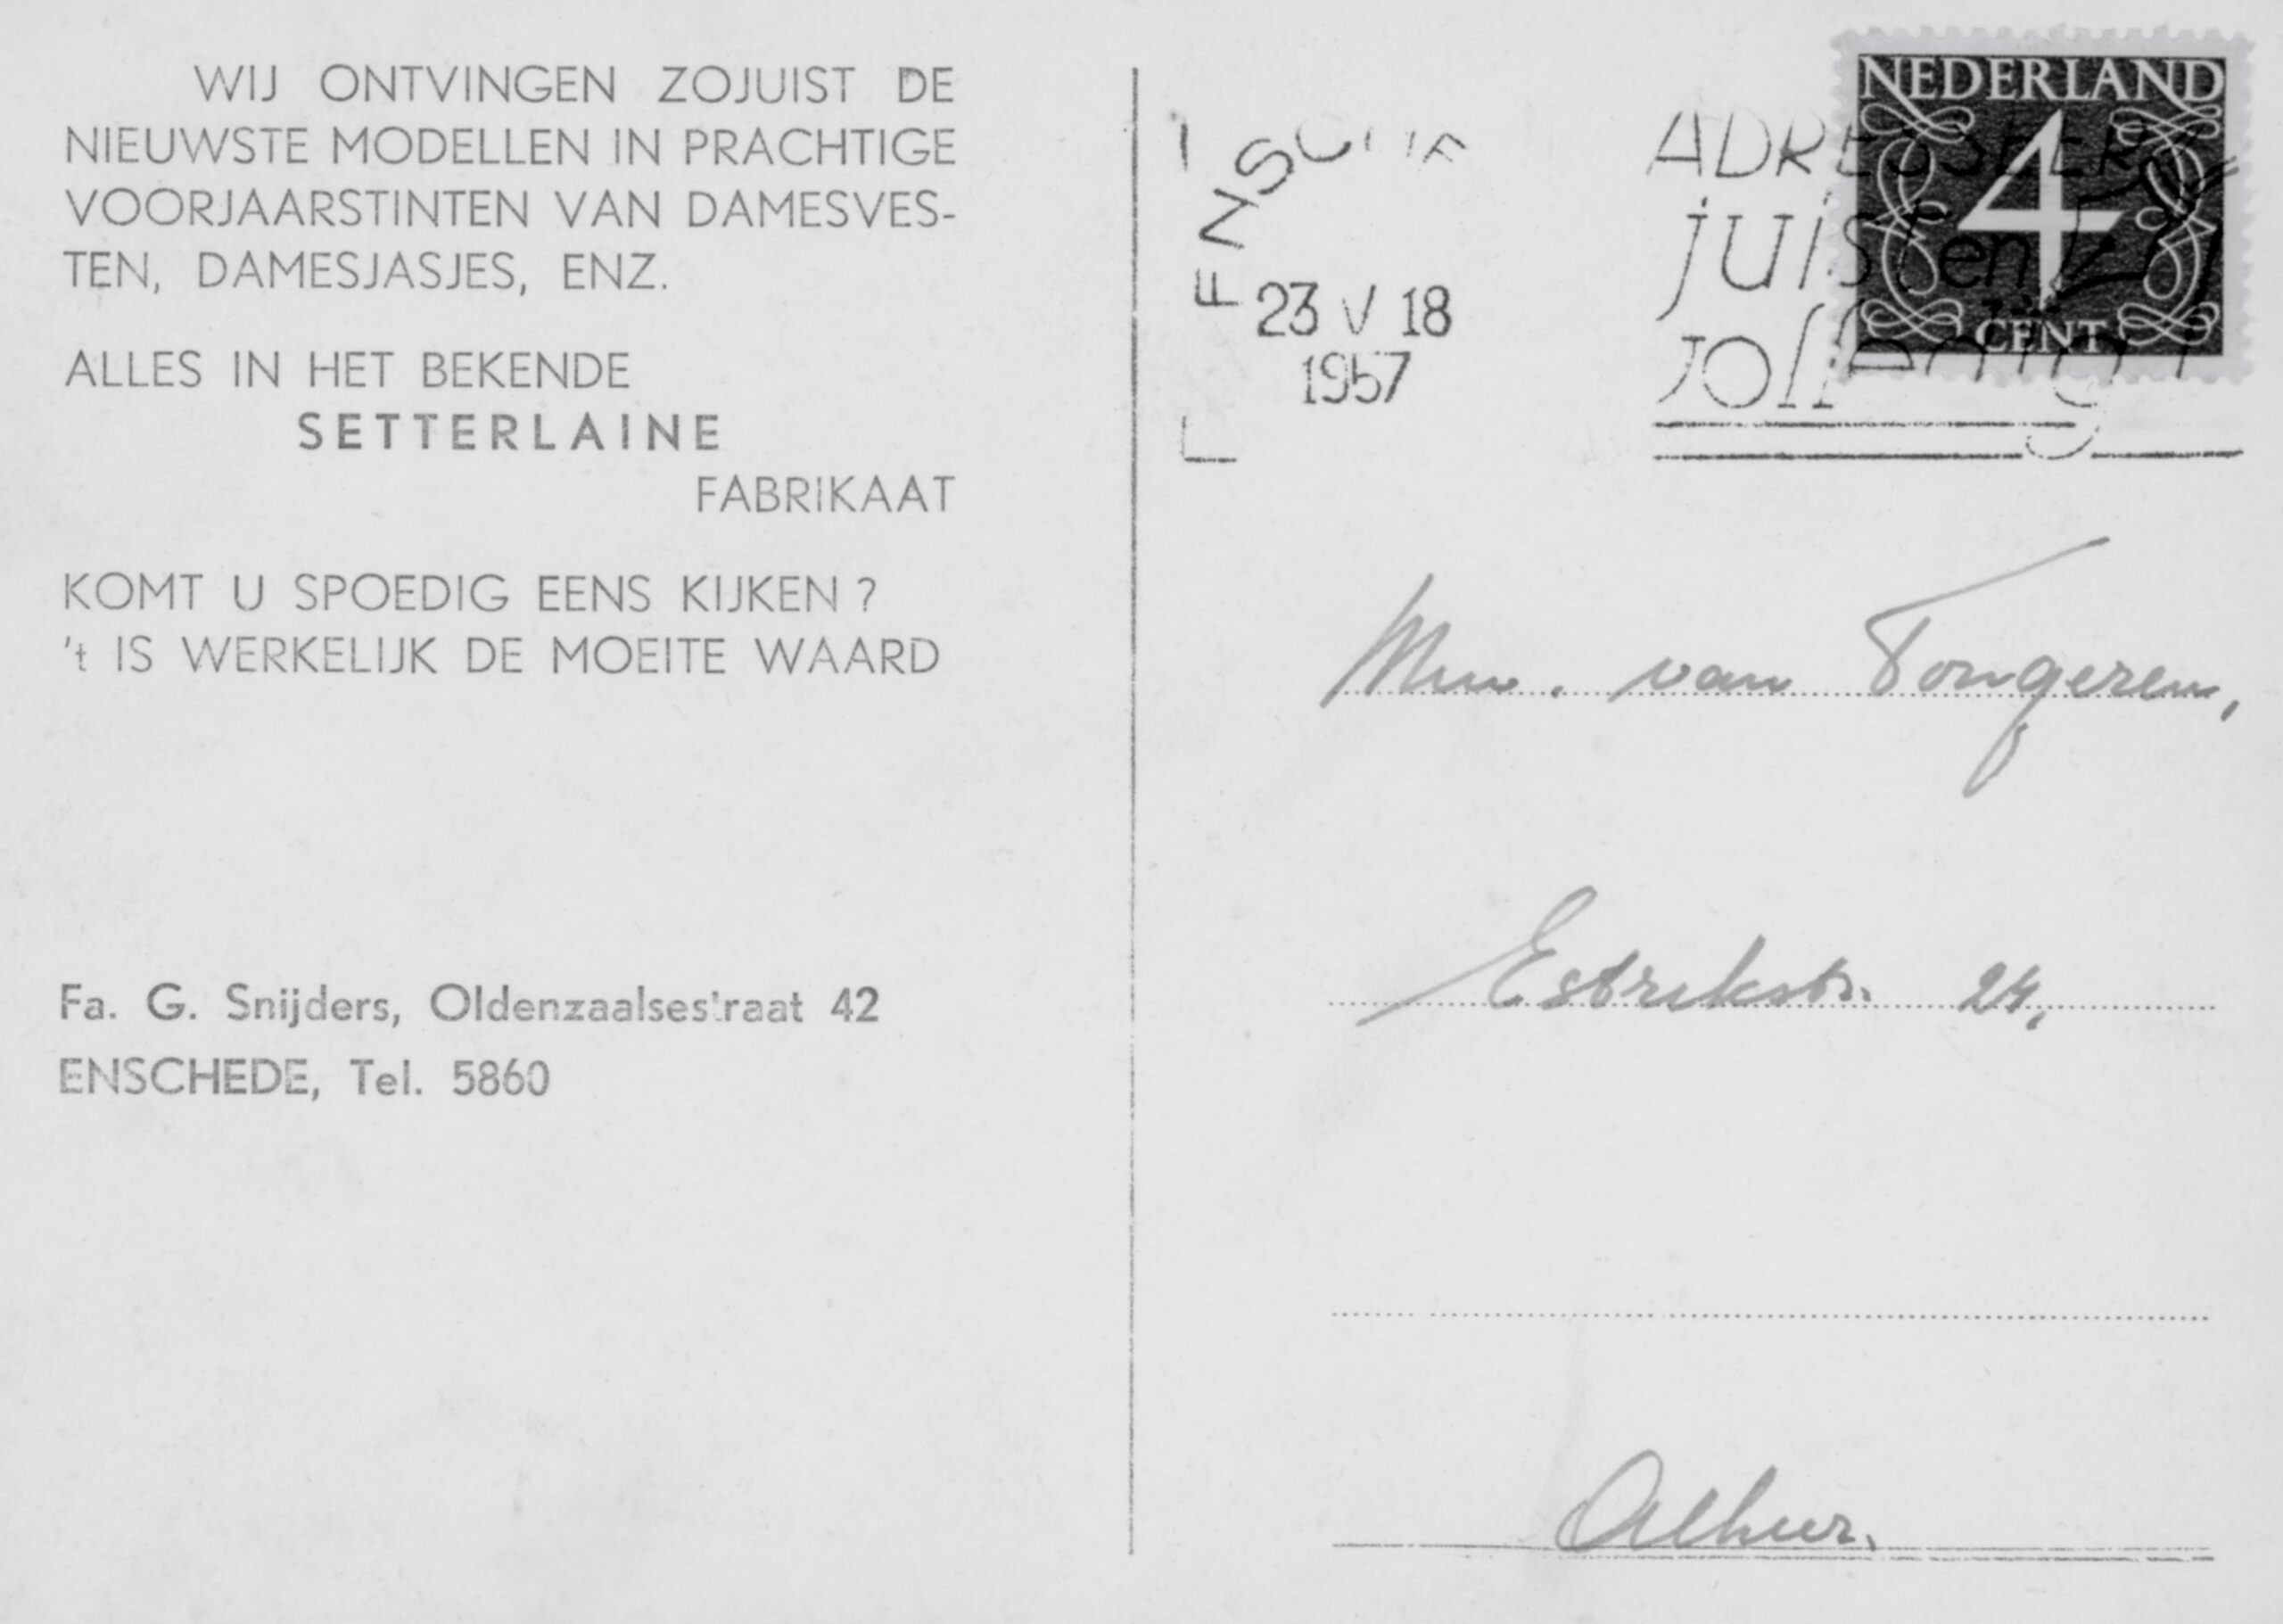 WIJ ONTVINGEN ZOJUIST DE
NIEUWSTE MODELLEN IN PRACHTIGE
VOORJAARSTINTEN VAN DAMESVES-
TEN, DAMESJASJES, ENZ.
ALLES IN HET BEKENDE
SETTERLAINE
FABRIKAAT
KOMT U SPOEDIG EENS KIJKEN ?
't IS WERKELIJK DE MOEITE WAARD
Fa. G. Snijders, Oldenzaalsestraat 42
ENSCHEDE, Tel. 5860
ENSCHEDE
23 V 18
1957
ADRESSEER
juist en
volledig
NEDERLAND
4
CENT
Mevr. van Tongeren,
Estrikstr. 24,
Alhier.